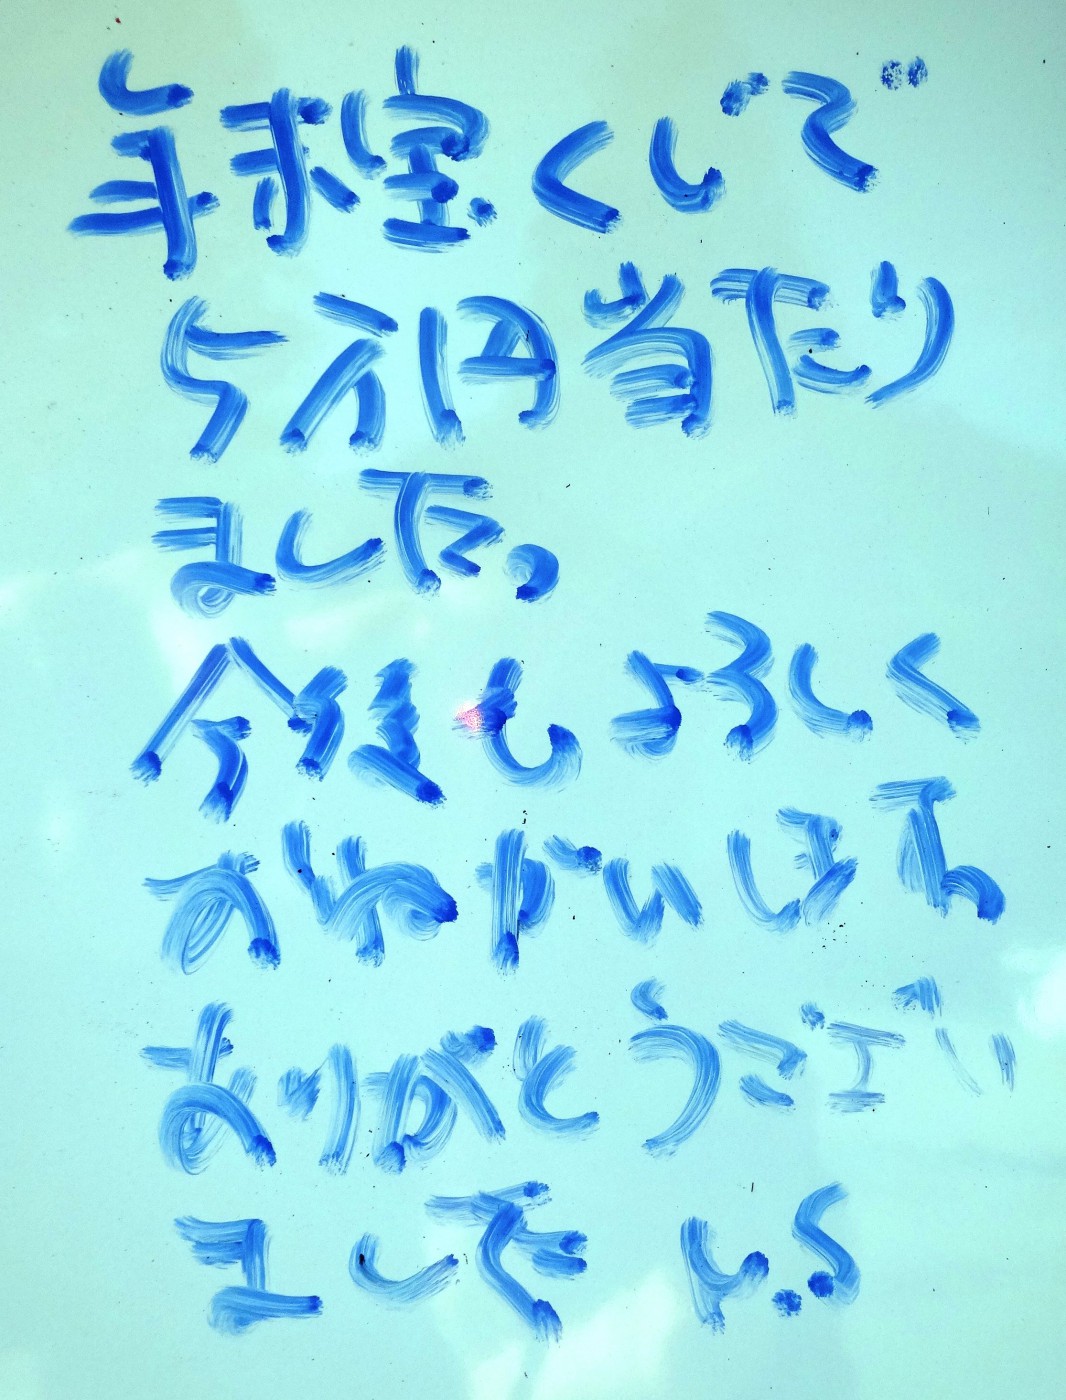 年末宝くじで
5万円当たり
ました。
よろしく
おねがいします
ありがとうござい
ました M.S